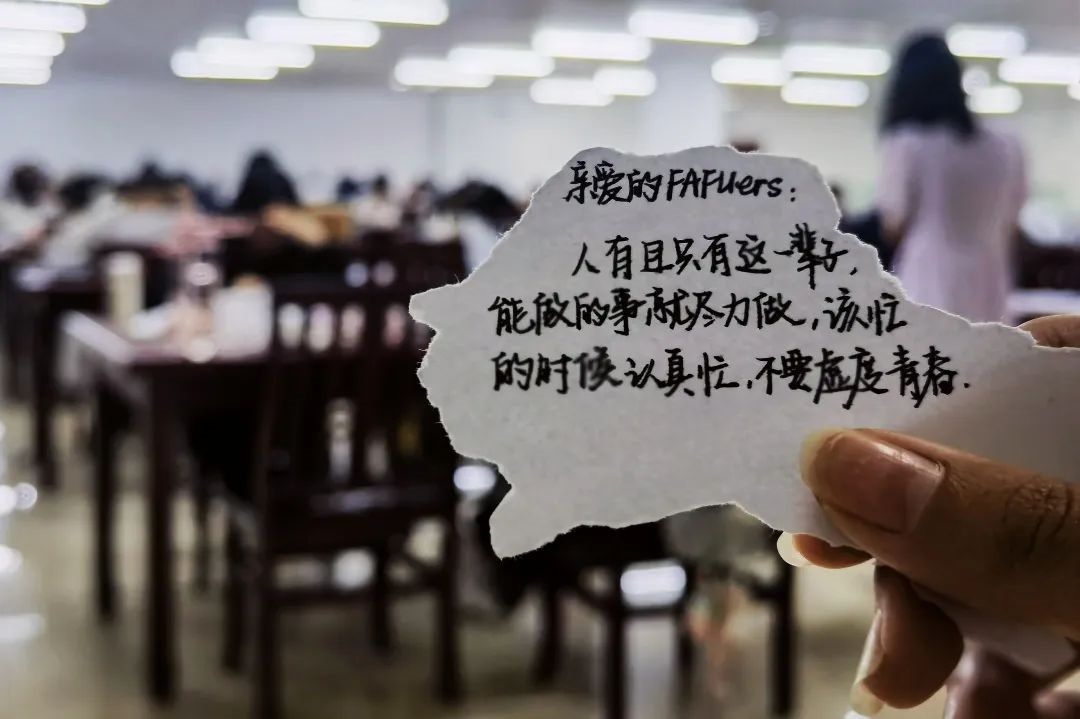 亲爱的FAFUers：
人有且只有这一辈子，
能做的事就尽力做，该忙
的时候认真忙，不要虚度青春.